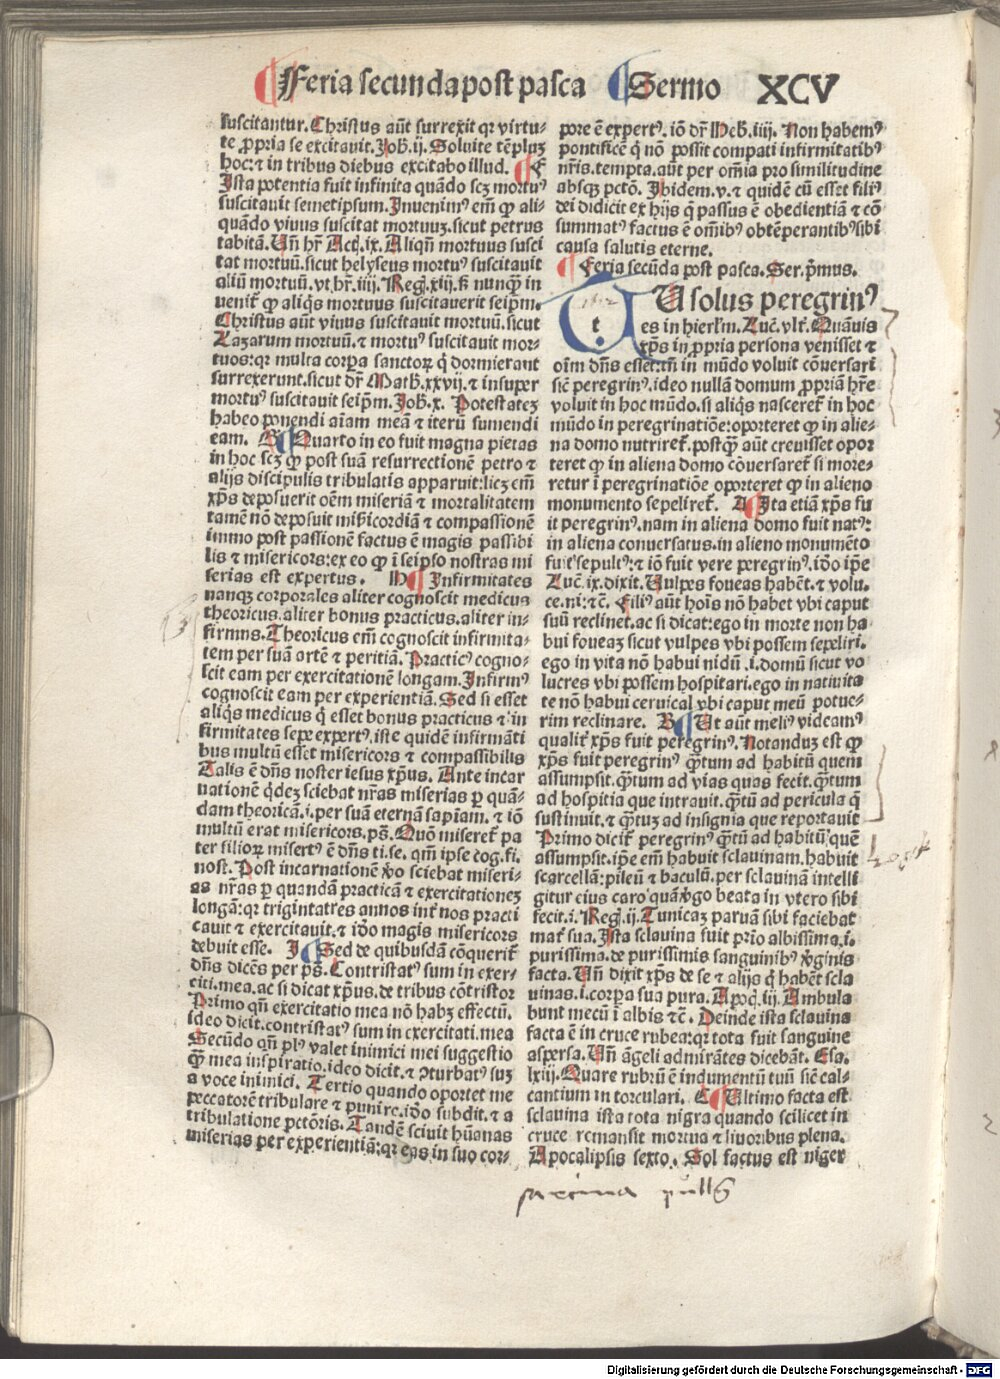 Feria secunda post pasca Sermo XCV
suscitantur. Christus aūt surrexit qꝛ virtu-
te ꝓpria se excitauit. Joh̄. ij. Soluite tēpluꝫ
hoc: ⁊ in tribus diebus excitabo illud. F
Ista potentia fuit infinita quādo scꝫ mortuꝰ
suscitauit semetipsum. Inuenimꝰ em̄ ꝙ ali-
quādo viuus suscitat mortuuꝫ. sicut petrus
tabitā. Un̄ hr̄ Act̄. ix. Aliqn̄ mortuus susci
tat mortuū. sicut helyseus mortuꝰ suscitauit
aliū mortuū. vt hr̄. iiij. Reḡ. xiij. ß nunqꝫ in
uenit̄ ꝙ aliqͥs mortuus suscitauerit seipm̄.
Christus aūt viuus suscitauit mortuū. sicut
Lazarum mortuū. ⁊ mortuꝰ suscitauit mor-
tuos: qꝛ multa corꝑa sanctoꝝ q̄ dormierant
surrexerunt. sicut dr̄ Math̄. xxvij. ⁊ insuper
mortuꝰ suscitauit seipm̄. Joh̄. x. Potestateꝫ
habeo ponendi aīam meā ⁊ iterū sumendi
eam. G Quarto in eo fuit magna pietas
in hoc scꝫ ꝙ post suā resurrectionē petro ⁊
alijs discipulis tribulatis apparuit: licꝫ em̄
xp̄s deposuerit oēm miseriā ⁊ mortalitatem
tamē nō deposuit mīcordiā ⁊ compassionē
immo post passionē factus ē magis passibi
lis ⁊ misericors: ex eo ꝙ ī seipso nostras mi
serias est expertus. H Infirmitates
nanqꝫ corporales aliter cognoscit medicus
theoricus. aliter bonus practicus. aliter in-
firmus. Theoricus em̄ cognoscit infirmita-
tem per suā artē ⁊ peritiā. Practicꝰ cogno-
scit eam per exercitationē longam. Infirmꝰ
cognoscit eam per experientiā. Sed si esset
aliqͥs medicus q̄ esset bonus practicus ⁊ in
firmitates sepe expertꝰ. iste quidē infirmāti
bus multū esset misericors ⁊ compassibilis
Talis ē dn̄s noster iesus xp̄us. Ante incar
nationē qͥdeꝫ sciebat nr̄as miserias ꝑ quā-
dam theoricā. i. per suā eternā sapiam̄. ⁊ iō
multū erat misericors. ps̄. Quō miseret̄ pa
ter filioꝝ misertꝰ ē dn̄s ti. se. qm̄ ipse cog. fi.
nost. Post incarnationē ꝟo sciebat miseri-
as nr̄as ꝑ quandā practicā ⁊ exercitationeꝫ
longā: qꝛ trigintatres annos int̄ nos practi
cauit ⁊ exercitauit. ⁊ iō magis misericors
debuit esse. I Sed de quibusdā cōquerit̄
dn̄s dicēs per ps̄. Contristatꝰ sum in exer-
citi. mea. ac si dicat xp̄us. de tribus cōtristor
Primo qn̄ exercitatio mea nō habꝫ effectū.
ideo dicit. contristatꝰ sum in exercitati. mea
Secūdo qn̄ plꝰ valet inimici mei suggestio
qͣꝫ mea inspiratio. ideo dicit. ⁊ ꝯturbatꝰ suꝫ
a voce inimici. Tertio quando oportet me
peccatorē tribulare ⁊ punire. iō subdit. ⁊ a
tribulatione pctōris. Tandē sciuit hūanas
miserias per experientiā: qꝛ eas in suo cor-
pore ē expertꝰ. iō dr̄ Heb̄. iiij. Non habemꝰ
pontificē q̄ nō possit compati infirmitatibꝰ
nr̄is. tempta. aūt per om̄ia pro similitudine
absqꝫ pctō. Ibidem. v. ⁊ quidē cū esset filiꝰ
dei didicit ex hijs q̄ passus ē obedientiā ⁊ cō
summatꝰ factus ē om̄ibꝰ obtēperantibꝰ sibi
causa salutis eterne.
Feria secūda post pasca. Ser. pͥmus.
t
U solus peregrinꝰ
es in hierl̄m. Luc̄. vlt̄. Quāuis
xp̄s in ꝓpria persona venisset ⁊
oīm dn̄s esset: tn̄ in mūdo voluit cōuersari
sic̄ peregrinꝰ. ideo nullā domum ꝓpriā hr̄e
voluit in hoc mūdo. si aliqͥs nasceret̄ in hoc
mūdo in peregrinatiōe: oporteret ꝙ in alie-
na domo nutriret̄. postqͣꝫ aūt creuisset opor
teret ꝙ in aliena domo cōuersaret̄ si more-
retur ī peregrinatiōe oporteret ꝙ in alieno
monumento sepeliret̄. A Ita etiā xp̄s fu
it peregrinꝰ. nam in aliena domo fuit natꝰ:
in aliena conuersatus. in alieno monumēto
fuit sepultꝰ: ⁊ iō fuit vere peregrinꝰ. iō ip̄e
Luc̄. ix. dixit. Uulpes foueas habēt. ⁊ volu.
ce. ni: ⁊c̄. Filiꝰ aūt hoīs nō habet vbi caput
suū reclinet. ac si dicat: ego in morte non ha
bui foueaꝫ sicut vulpes vbi possem sepeliri.
ego in vita nō habui nidū .i. domū sicut vo
lucres vbi possem hospitari. ego in natiuita
te nō habui ceruical vbi caput meū potue-
rim reclinare. B Ut aūt meliꝰ videamꝰ
qualit̄ xp̄s fuit peregrinꝰ. Notanduꝫ est ꝙ
xp̄s fuit peregrinꝰ qͣꝫtum ad habitū quem
assumpsit. qͣꝫtum ad vias quas fecit. qͣꝫtum
ad hospitia que intrauit. qͣꝫtū ad pericula q̄
sustinuit. ⁊ qͣꝫtuꝫ ad insignia que reportauit
Primo dicit̄ peregrinꝰ qͣꝫtū ad habitū quē
assumpsit. ip̄e em̄ habuit sclauinam. habuit
scarcellā: pileū ⁊ baculū. per sclauinā intelli
gitur eius caro quā ꝟgo beata in vtero sibi
fecit. i. Reḡ. ij. Tunicaꝫ paruā sibi faciebat
mat̄ sua. Ista sclauina fuit prīo albissima. i.
purissima. de purissimis sanguinibꝰ ꝟginis
facta. Un̄ dixit xp̄s de se ⁊ alijs q̄ habēt scla
uinas. i. corꝑa sua pura. Apoc̄. iij. Ambula
bunt mecū ī albis ⁊c̄. Deinde ista sclauina
facta ē in cruce rubea: qꝛ tota fuit sanguine
aspersa. Un̄ āgeli admirātes dicebāt. Esa.
lxiij. Quare rubrū ē indumentū tuū sic̄ cal-
cantium in torculari. C Ultimo facta est
sclauina ista tota nigra quando scilicet in
cruce remansit mortua ⁊ liuoribus plena.
Apocalipsis sexto. Sol factus est niger
Digitalisierung gefördert durch die Deutsche Forschungsgemeinschaft - DFG